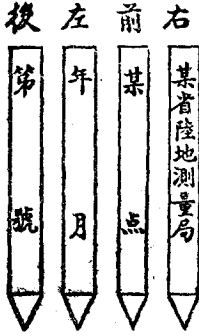 右
前
左
後
某省陸地測量局
某点
年月
第號